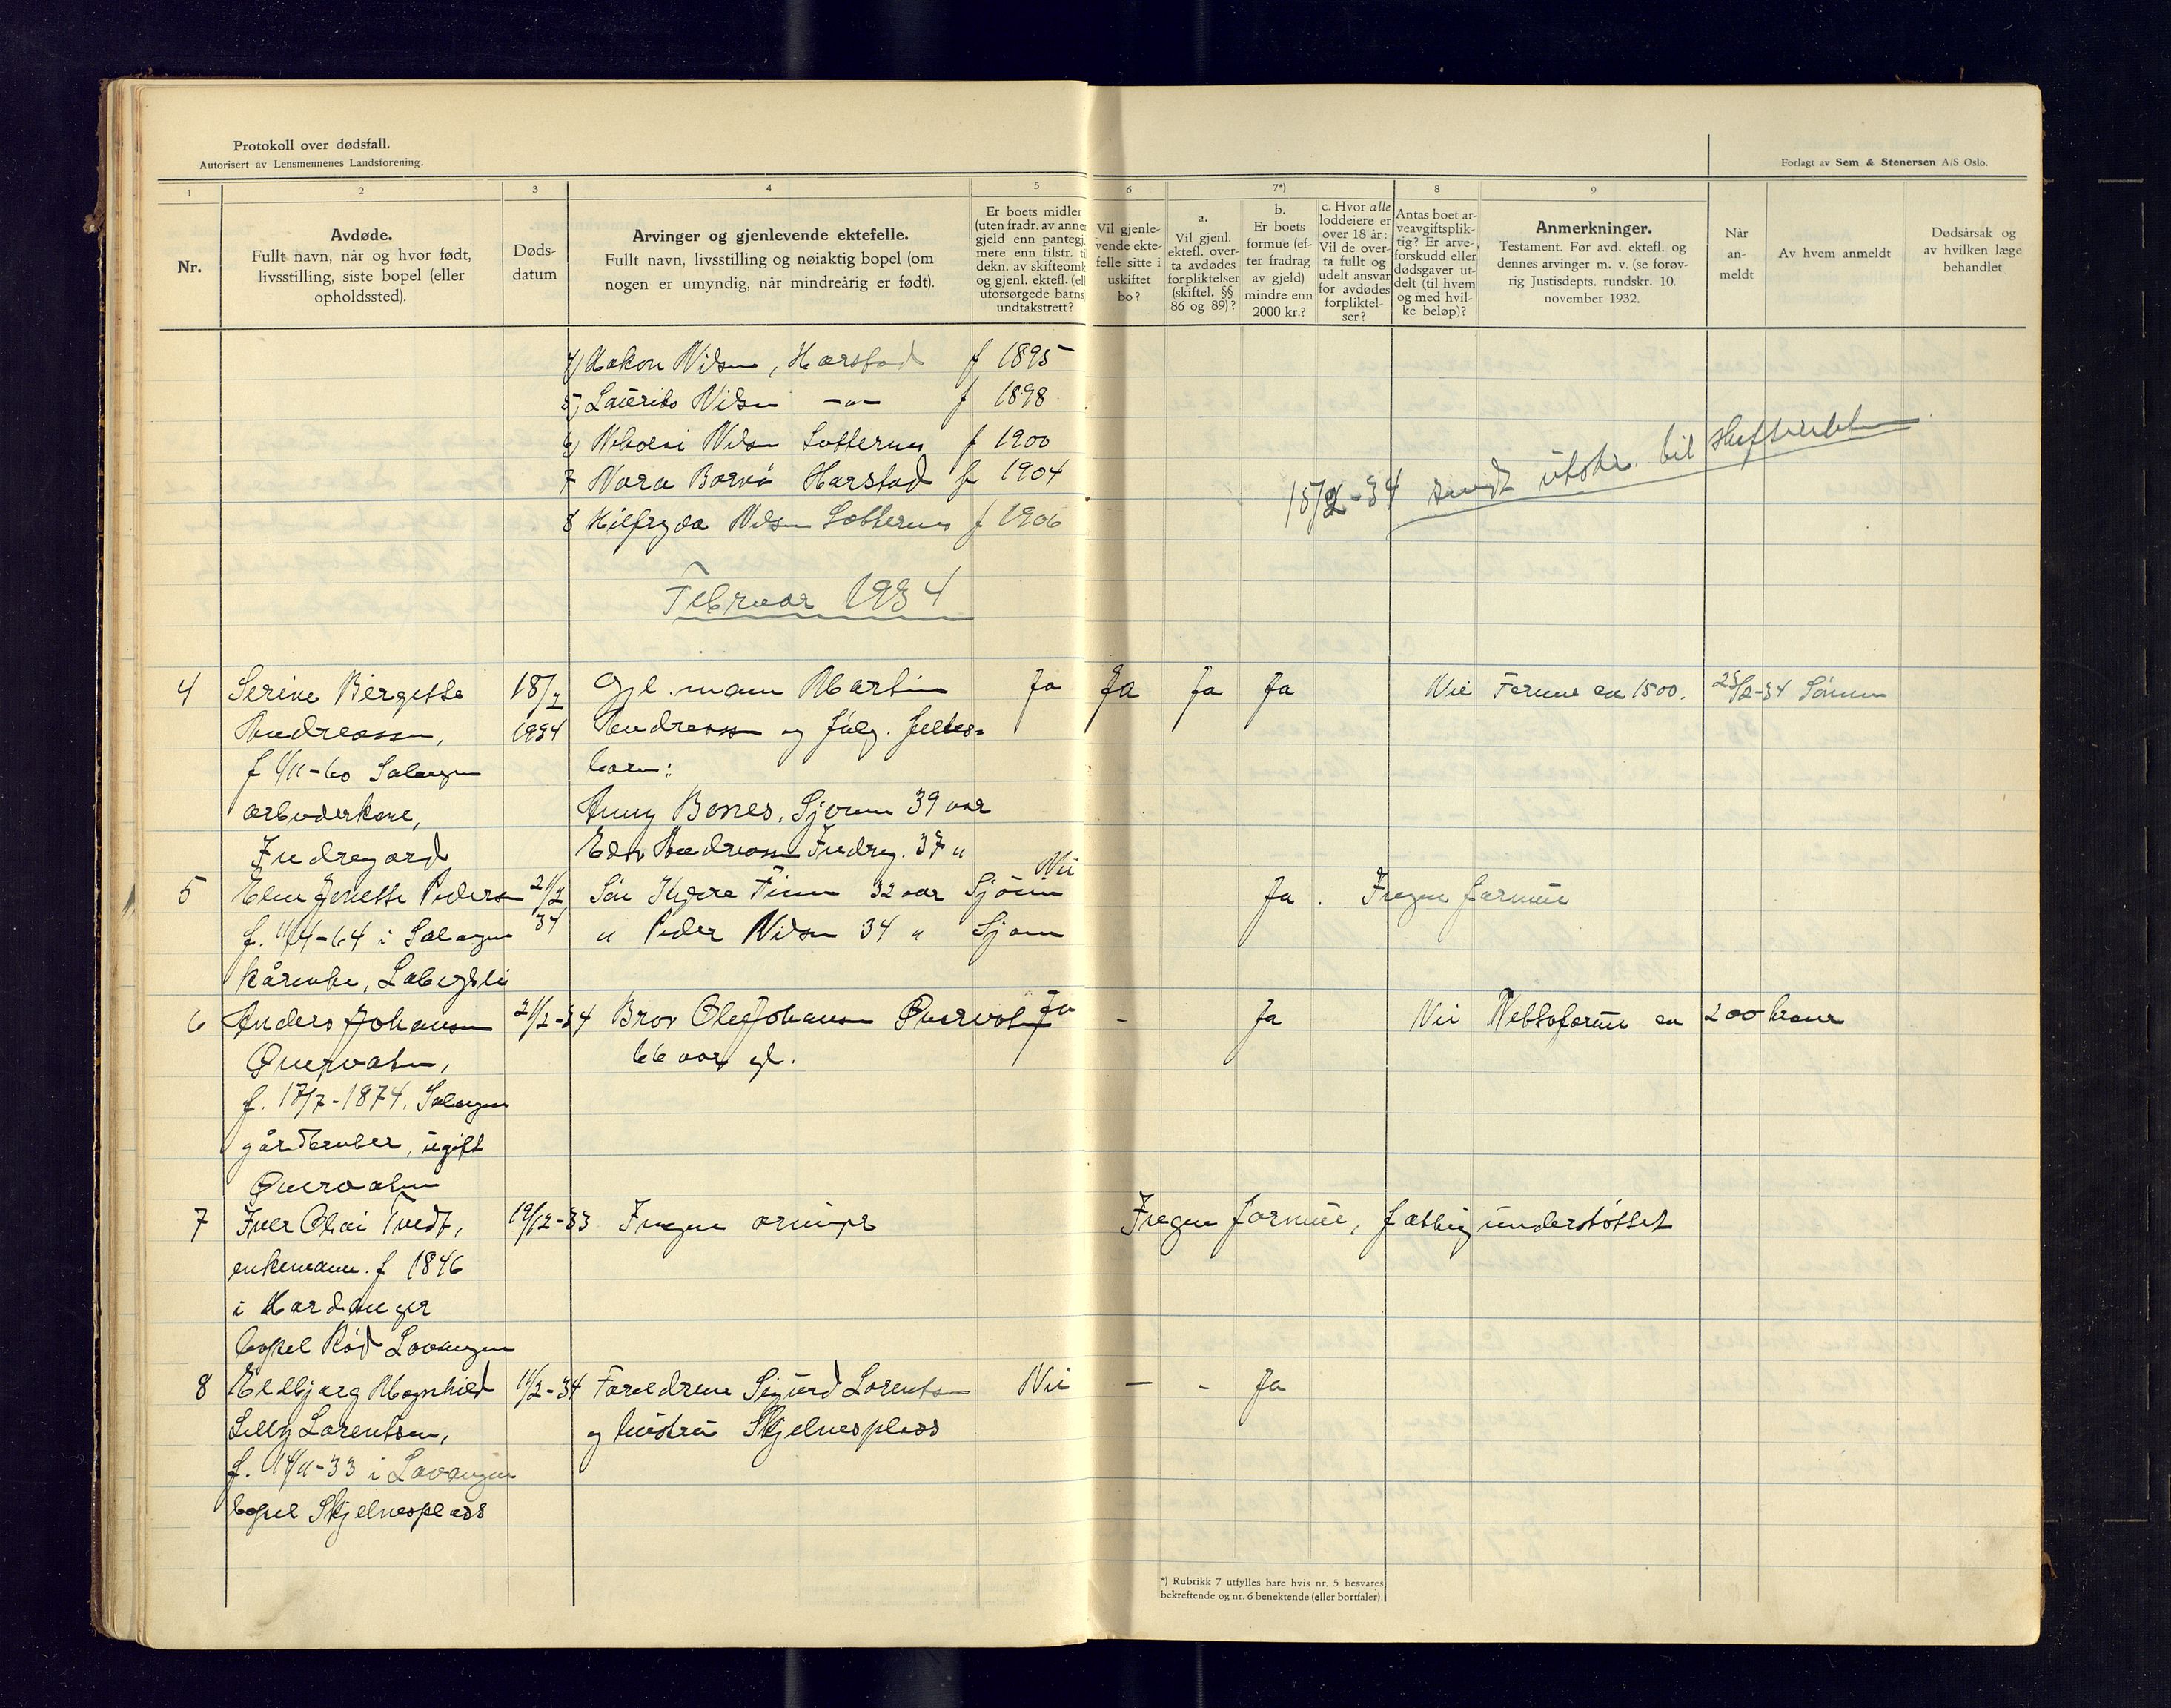 Protokoll over dødsfall.
Autorisert av Lensmennenes Landsforening.
Forlagt av Sem & Stenersen A/S Oslo.
1 2 3 4 5 6 7*) 8 9
Nr.
Avdøde.
Fullt navn, når og hvor født,
livsstilling, siste bopel (eller
opholdssted).
Døds-
datum
Arvinger og gjenlevende ektefelle.
Fullt navn, livsstilling og nøiaktig bopel (om
nogen er umyndig, når mindreårig er født).
Er boets midler
(uten fradr. av annen
gjeld enn pantegj.
mere enn tilstr. ti
dekn. av skifteomk
og gjenl. ektefl. (ell
uforsørgede barns
undtakstrett?
Vil gjenle-
vende ekte-
felle sitte i
uskiftet
bo?
a.
Vil gjenl.
ektefl. over-
ta avdødes
forpliktelser
(skiftel. §§
86 og 89)?
b.
Er boets
formue (ef-
ter fradrag
av gjeld)
mindre enn
2000 kr.?
c. Hvor alle
loddeiere er
over 18 år:
Vil de over-
ta fullt og
udelt ansvar
for avdødes
forpliktel-
ser?
Antas boet ar-
veavgiftsplik-
tig? Er arve-
forskudd eller
dødsgaver ut-
delt (til hvem
og med hvil-
ke beløp)?
Anmerkninger.
Testament. Før avd. ektefl. og
dennes arvinger m. v. (se forøv-
rig Justisdepts. rundskr. 10.
november 1932.
Når
an-
meldt
Av hvem anmeldt
Dødsårsak og
av hvilken læge
behandlet
4) Hakon Nilsen, Harstad f 1895
5) Laurits Nilsen -"- f 1898
6) Nikolai Nilsen f 1900
7 Nora Harstad f 1904
8 Nilsen f 1906
15/2-34 sendt utskr. til skifteretten
Februar 1934
4 Serine Bergitte 18/2 Gjl. mann Martin Ja Ja Ja Ja Nei Formue ca 1500. 23/2-34 Sønnen
Andreassen, 1934 Andreassen og følg. felles-
f 1/11-60 Salangen barn:
arbeiderkone, Anny Bones, Sjøvegn 39 aar
Indregard Andreassen Indreg. 37 "
5 Elen Jenette Pedersen 21/2 Søn Finsen 32 aar Sjøvegn Nei Ja. Ingen formue
f. 11/4-64 i Salangen 34 " Peder Nilsen 34 " Sjøvegn
kårenke,
6 Anders Johansen 21/2-34 Bror Ole Johansen Øvervatn Ja - Ja Nei Nettoformue ca 200 kroner
Øvervatn, 66 aar gl.
f. 17/7-1874. Salangen
gårdbruker, ugift
Øvervatn
7 Iver Olai Tvedt, 19/12-33 Ingen arvinger Ingen formue, fattigunderstøttet
enkemann. f 1846
i Hardanger
bopel Rød Lavangen
8 Eldbjørg Magnhild 11/2-34 Foreldrene Sigurd Lorentsen Nei - - Ja
Lilly Lorentsen, og hustru Skjelnesplass
f. 14/11-33 i Lavangen
bopel Skjelnesplass
*) Rubrikk 7 utfylles bare hvis nr. 5 besvares
bekreftende og nr. 6 benektende (eller bortfaler).